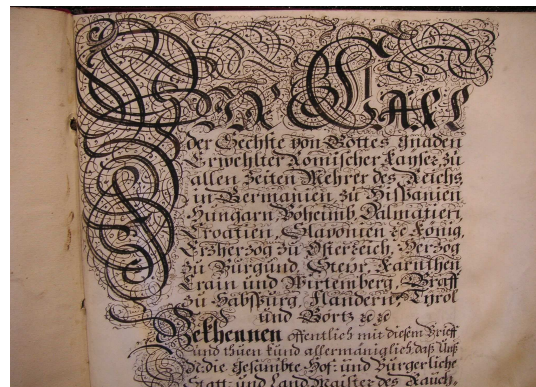 Wir Carl
der Sechste von Gottes Gnaden
Erwehlter Römischer Kayser zu
allen Zeiten Mehrer des Reichs
in Germanien zu Hispanien
Hungarn Boheimb, Dalmatien,
Croatien, Slavonien &c König,
Erzherzog zu Österreich, Herzog
zu Burgund, Steyr, Kärnthen
Crain und Wirtemberg, Graff
zu Habspurg, Flandern, Tyrol
und Görtz &c &c
Bekhennen offentlich mit disem Brieff
und thuen kund allermäniglich, daß Unß
die gesambte Hof- und Burgerliche
Statt- und Land Maister des Rauch-